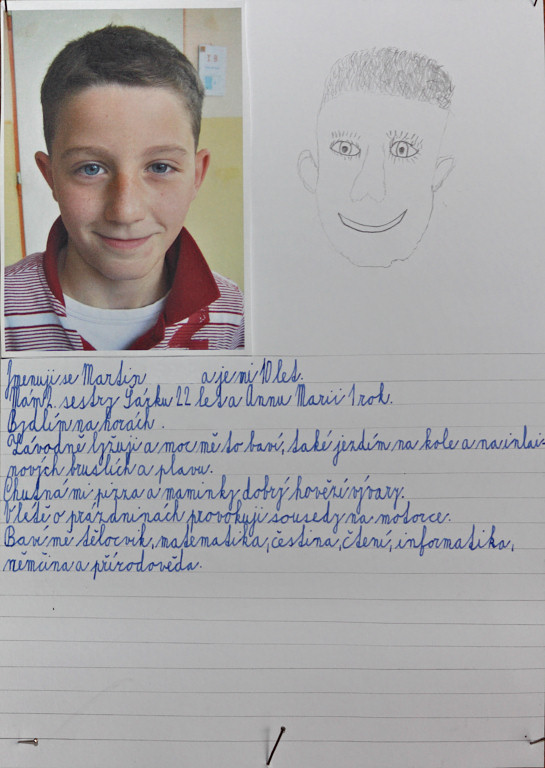 7.B
Jmenuji se Martin a je mi 10 let.
Mám 2 sestry Šárku 22 let a Annu Marii 1 rok.
Bydlím na horách.
Závodně lyžuji a moc mě to baví, také jezdím na kole a na inlai-
nových bruslích a plavu.
Chutná mi pizza a maminky dobrý hovězí vývary.
V létě o prázdninách provokuji sousedy na motorce.
Baví mě tělocvik, matematika, čeština, čtení, informatika,
němčina a přírodověda.